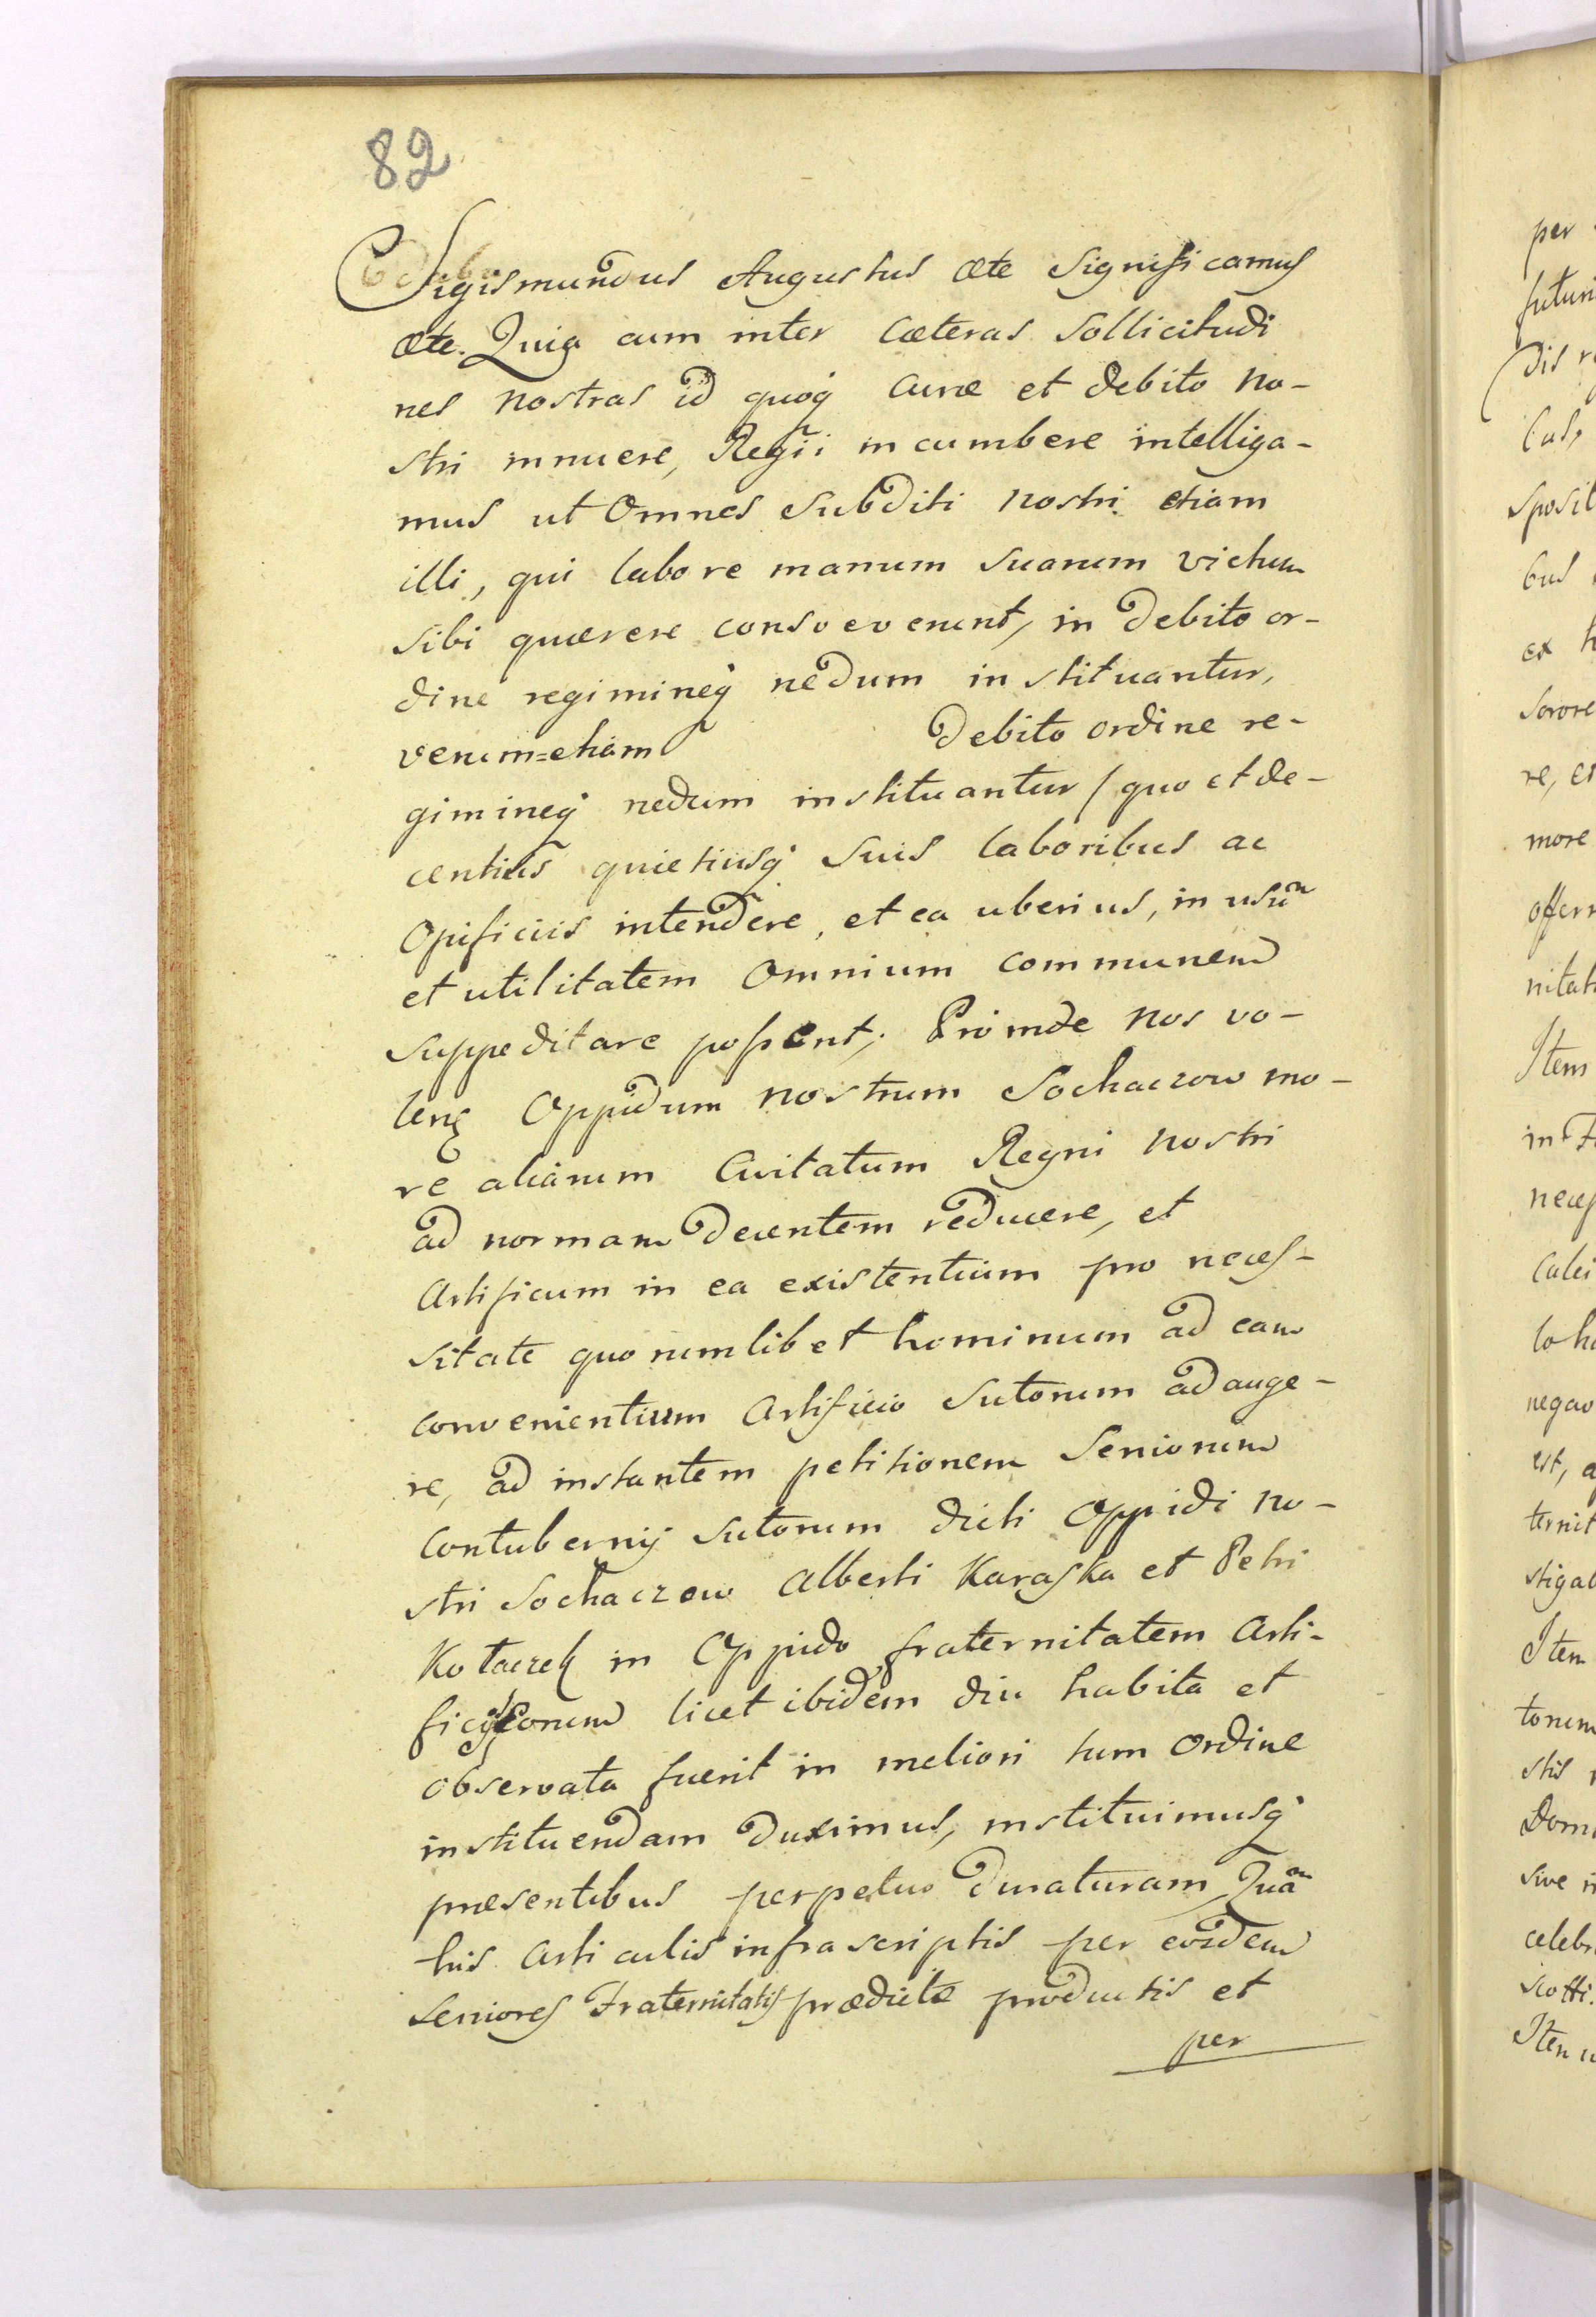 82
Sigismundus Augustus æte Significamus
æte. Quia cum inter Cæteras Sollicitudi
nes nostras id quoq curæ et debito no-
stri mnuere, Regii incumbere intelliga-
mus ut Omnes Subditi nostri etiam
illi, qui labore manum suarum victum
sibi quærere consveverunt, in debito or-
dine regimineq nedum instituantur,
verum=etiam debito ordine re-
gimineq nedum instituantur / quo et de-
centius quietiusq suis laboribus ac
Opificiis intendere, et ea uberius, in usum̃
et utilitatem Omnium communem
suppeditare possent; Proinde nos vo-
lens Oppidum nostrum Sochaczow mo-
re aliarum Civitatum Regni nostri
ad normam decentem reducere, et
Artificum in ea existentium pro neces-
sitate quorumlibet hominum ad eam
convenientium Artificio Sutorum adauge-
re, ad instantem petitionem Seniorum
Contubernij Sutorum dicti Oppidi no-
stri Sochaczow Alberti Karaska et Petri
Kołaczek in Oppido fraternitatem Arti-
ficij eorum licet ibidem diu habita et
observata fuerit in meliori tum Ordine
instituendam duximus, instituimusq
præsentibus perpetuo duraturam, Quã
his Articulis infrascriptis per eosdem
Seniores Fraternitatis prædictæ productis et
per
per
futuri
dis
sposit
bus
ex
Sorore
re, et
more
offerr
nitat
Item
in
neces
Calci
negav
est,
ternit
stigab
Item
torum
stis
Domi
sive
celebr
Item